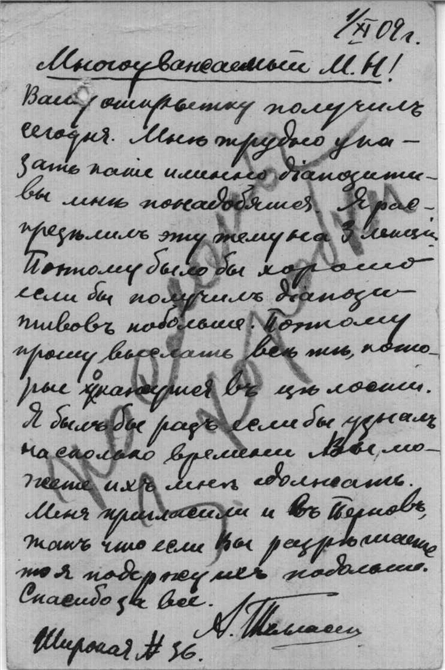 1/XI 09 г.
Многоуважаемый М. Н!
Вашу открытку получилъ
сегодня. Мнѣ трудно ука-
зать какіе именно діапозити-
вы мнѣ понадобятся. Я рас-
предѣлилъ эту тему на 3 лекціи.
Поэтому было бы хорошо
если бы получилъ діапози-
тивовъ побольше. Поэтому
прошу выслать всѣ тѣ, кото-
рые окажутся въ цѣлости.
Я былъ бы радъ если бы узналъ
на сколько времени Вы мо-
жете ихъ мнѣ одолжать.
Меня пригласили и въ Перновъ,
такъ что если Вы разрѣшаете
то я подержу ихъ побольше.
Спасибо за все.
А.
Широкая № 36.